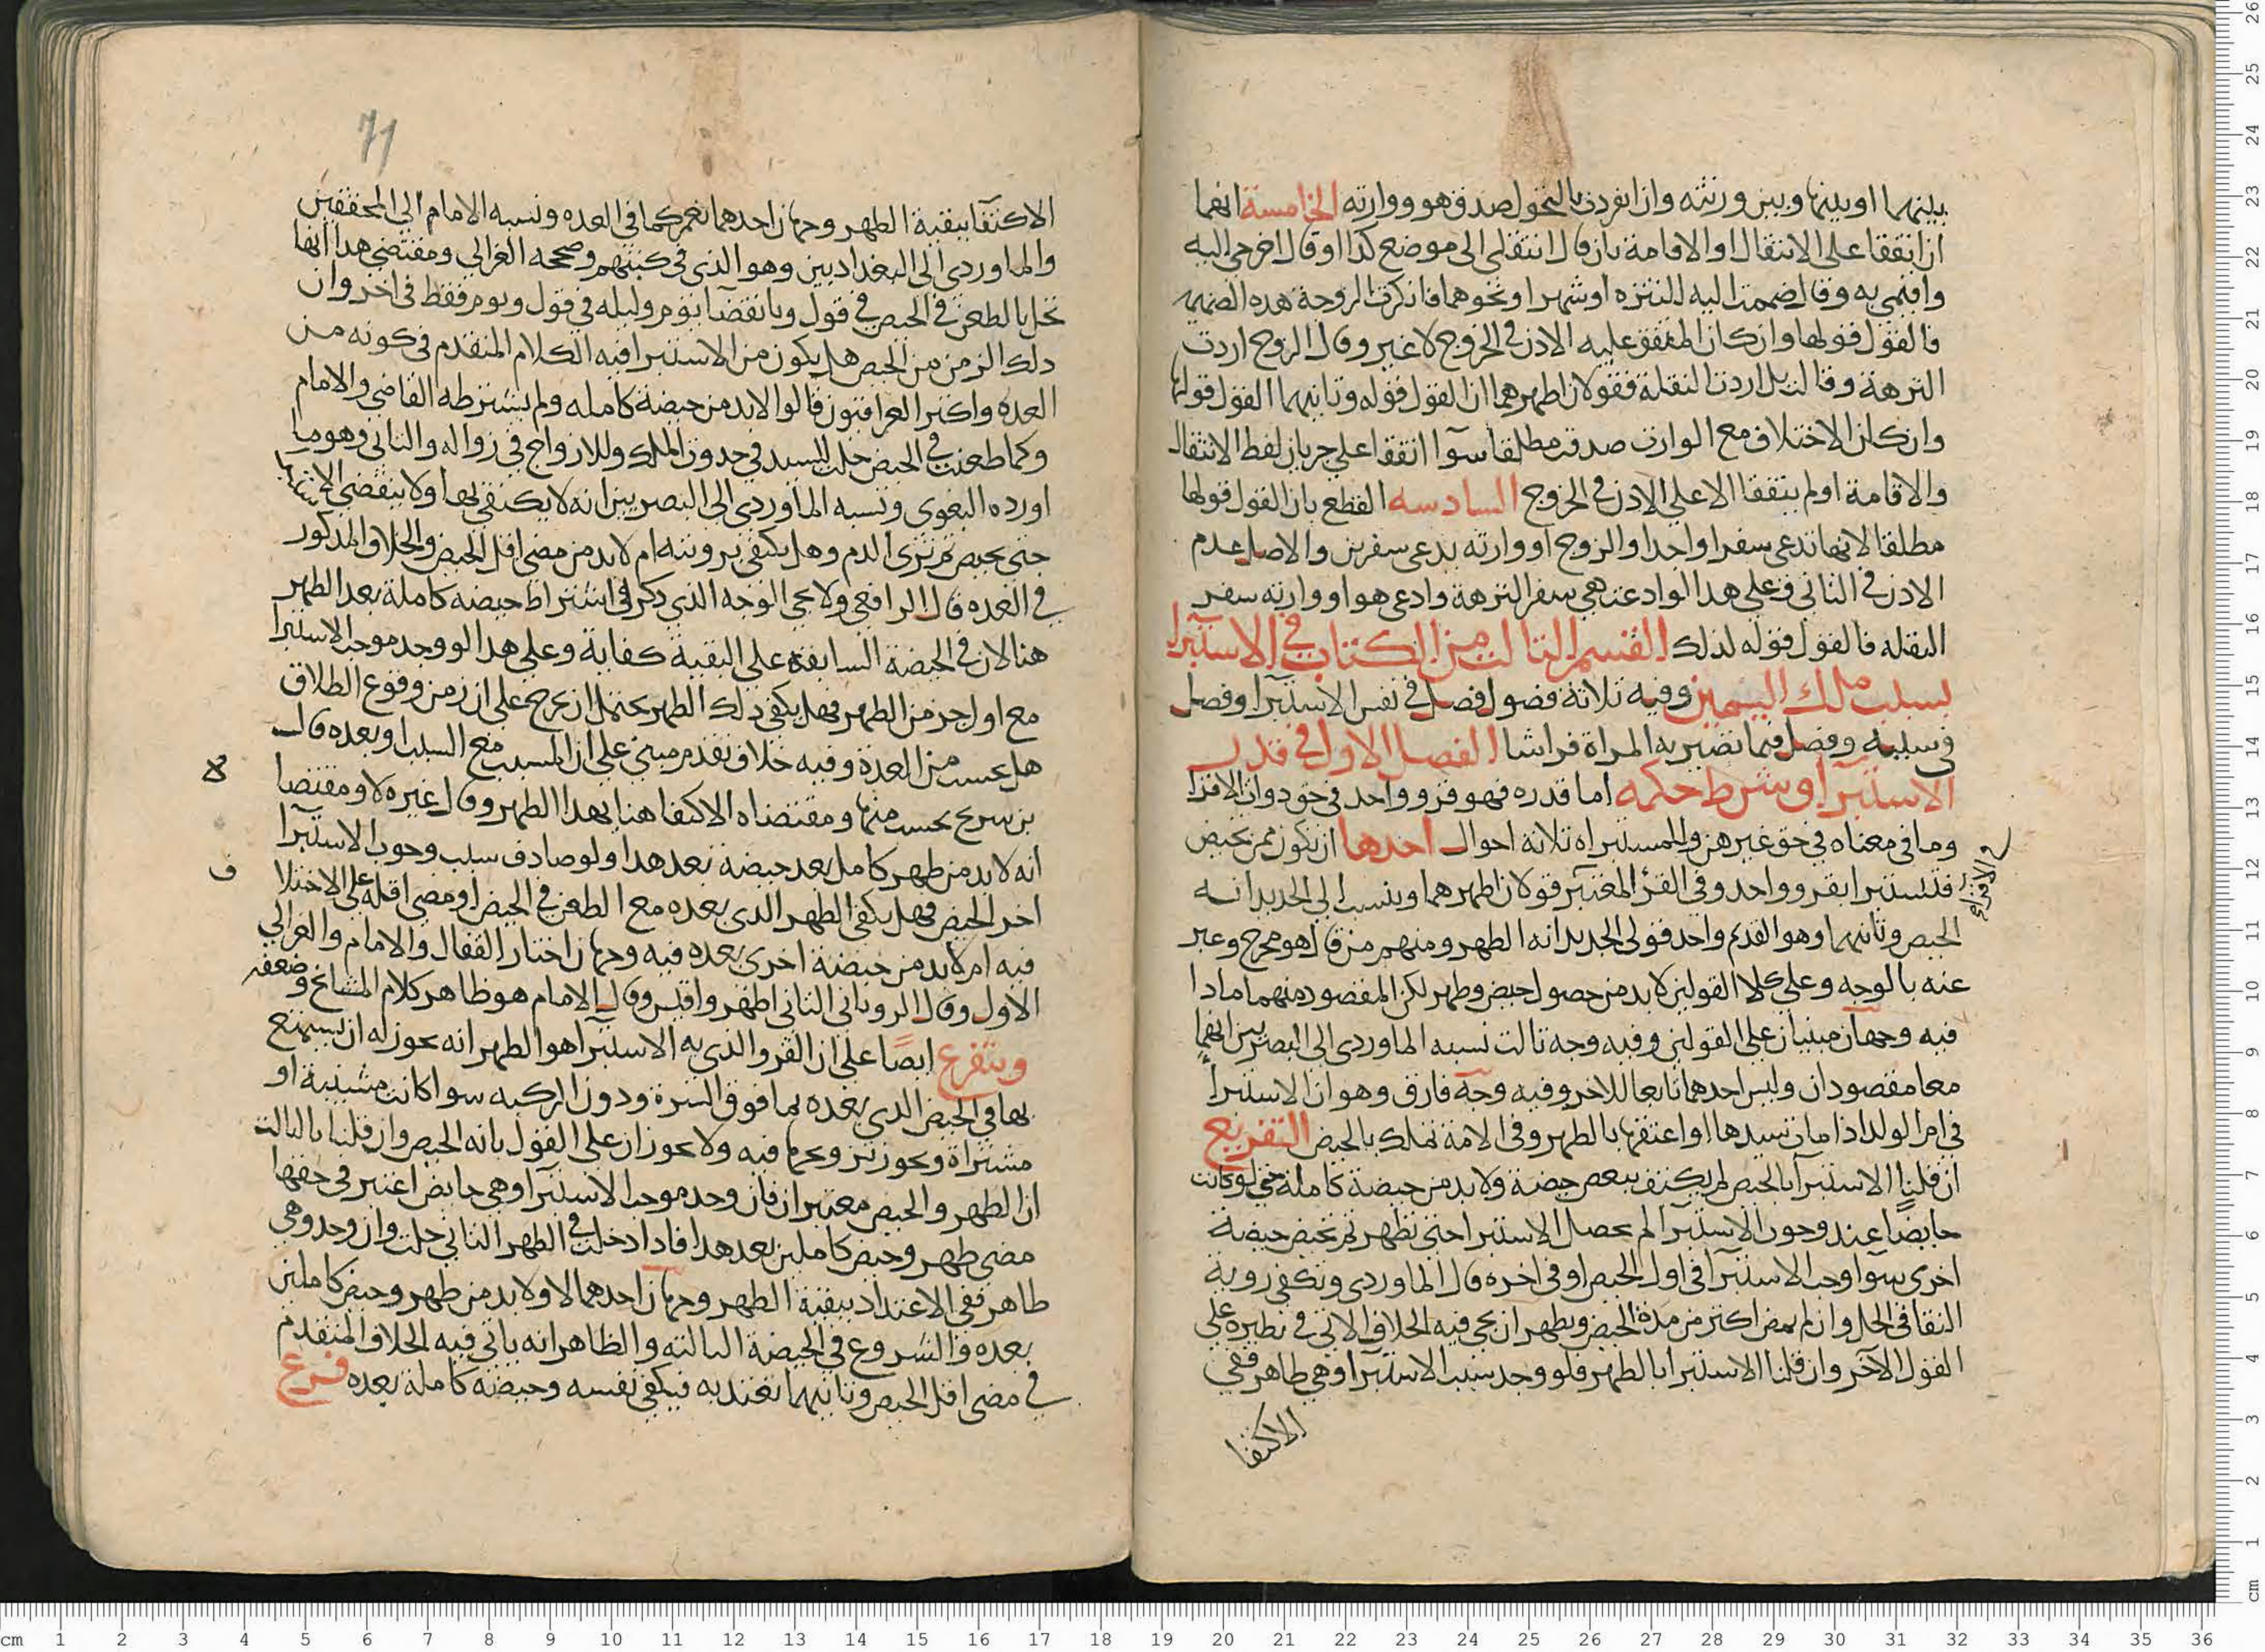 بينهما او بينها وبين ورثته وان انفردت بالتحول صدق هو ووارثه الخامسة انهما
ان اتفقا على الانتقال او الاقامة بان قال انتقلي الى موضع كذا او قال اخرجي اليه
واقيمي به وقال ضممت اليه للنزه او شهرا او نحوهما فانكرت الزوجة هذه الضميمه
فالقول قولها وان كان المتفق عليه الاذن في الخروج لا غير وقال الزوج اردت
النزهة وقالت بل اردت النقلة فقولان اظهرهما ان القول قوله وثانيهما القول قولها
وان كان الاختلاف مع الوارث صدقت مطلقا سوآ اتفقا على جريان لفظ الانتقال
والاقامة او لم يتفقا الا على الاذن في الخروج السادسه القطع بان القول قولها
مطلقا لانها تدعى سفرا واحدا والزوج او وارثه يدعى سفرين والاصل عدم
الاذن في الثاني فعلى هذا لو ادعت هي سفر النزهة وادعى هو او وارثه سفر
النقله فالقول قوله لذلك القسم الثالث من الكتاب في الاستبرا
بسبب ملك اليمين وفيه ثلاثة فصول فصل في نفس الاستبرا وفصل
في سببه وفصل فيما تصير به المراة فراشا الفصل الاول في قدر
الاستبرا وشرط حكمه اما قدره فهو قرو واحد في حق ذوات الاقرا
وما في معناه في حق غيرهن وللمستبراه ثلاثه احوال احدها ان تكون ممن تحيض
ذوات الاقراء
فتستبرا بقرو واحد وفي القرؤ المعتبر قولان اظهرهما وينسب الى الجديد انه
الحيض وثانيهما وهو القديم واحد قولى الجديد انه الطهر ومنهم من قال هو مخرج وعبر
عنه بالوجه وعلى كلا القولين لا بد من حصول حيض وطهر لكن المقصود منهما ماذا
فيه وجهان مبنيان على القولين وفيه وجه ثالث نسبه الماوردي الى البصريين انهما
معا مقصودان وليس احدهما تابعا للاخر وفيه وجه فارق وهو ان الاستبرا
في ام الولد اذا مات سيدها او اعتقها بالطهر وفي الامة تملك بالحيض التفريع
ان قلنا الاستبرآ بالحيض لم يكتف ببعض حيضة ولا بد من حيضة كاملة حتى لو كانت
حايضا عند وجوب الاستبرآ لم يحصل الاستبرا حتى تطهر ثم تحيض حيضة
اخرى سوآ وجب الاستبرآ في اول الحيض او في اخره قال الماوردي وتكفي روية
النقا في الحل وان لم يمض اكثر من مدة الحيض ويظهر ان يجي فيه الخلاف الاتي في نظيره على
القول الآخر وان قلنا الاستبرا بالطهر فلو وجد سبب الاستبرآ وهي طاهر ففي
الاكتفا
71
الاكتفآ ببقية الطهر وجهان احدهما نعم كما في العده ونسبه الامام الى المحققين
والماوردي الى البغداديين وهو الذي في كتبهم وصححه الغزالي ومقتضى هذا انها
تحل بالطعن في الحيض في قول وبانقضآ يوم وليله في قول ويوم فقط في اخر وان
ذلك الزمن من الحيض هل يكون من الاستبرا فيه الكلام المتقدم في كونه من
العدة واكثر العراقيون قالوا لابد من حيضة كامله ولم يشترطه القاضي والامام
وكما طعنت في الحيض حلت للسيد في حدوث الملك وللازواج في زواله والثاني وهو ما
اورده البغوي ونسبه الماوردي الى البصريين انه لا يكتفى بها ولا ينقضي الاستبرا
حتى تحيض ثم ترى الدم وهل يكتفى برويته ام لا بد من مضى اقل الحيض والخلاف المذكور
في العده قال الرافعي ولا يجي الوجه الذي ذكر في اشتراط حيضه كاملة بعد الطهر
هنا لان في الحيضة السابقة على البقية كفاية وعلى هذا لو وجد موجب الاستبرا
مع اول جز من الطهر فهل يكفي ذلك الطهر يحتمل ان يخرج على ان زمن وقوع الطلاق
هل يحسب من العدة وفيه خلاف تقدم مبني على ان المسبب مع السبب او بعده قال
بن سريج يحسب منها ومقتضاه الاكتفا هنا بهذا الطهر وقال غيره لا ومقتضا
انه لا بد من طهر كامل بعد حيضة بعد هذا ولو صادف سبب وجوب الاستبرآ
اخر الحيض فهل يكفي الطهر الذي بعده مع الطعن في الحيض او مضى اقله على الاختلا ف
فيه ام لا بد من حيضة اخرى بعده فيه وجهان اختار القفال والامام والغزالي
الاول وقال الروياني الثاني اظهر واقيس وقال الامام هو ظاهر كلام المشايخ وضعفه
ويتفرع ايضا على ان القرو الذي به الاستبرآ هو الطهر انه يجوز له ان يستمتع
بها في الحيض الذي بعده بما فوق السرة ودون الركبه سوا كانت مسبية او
مشتراة ويجوز تزويجها فيه ولا يجوزان على القول بانه الحيض وان قلنا بالثالث
ان الطهر والحيض معتبران فان وجد موجب الاستبرآ وهي حايض اعتبر في حقها
مضى طهر وحيض كاملين بعد هذا فاذا دخلت في الطهر الثاني حلت وان وجد وهي
طاهر ففي الاعتداد ببقية الطهر وجهان احدهما لا ولا بد من طهر وحيض كاملين
بعده والشروع في الحيضة الثالثه والظاهر انه ياتي فيه الخلاف المتقدم
في مضى اقل الحيض وثانيهما تعتد به فيكفى نفسه وحيضة كاملة بعده فرع